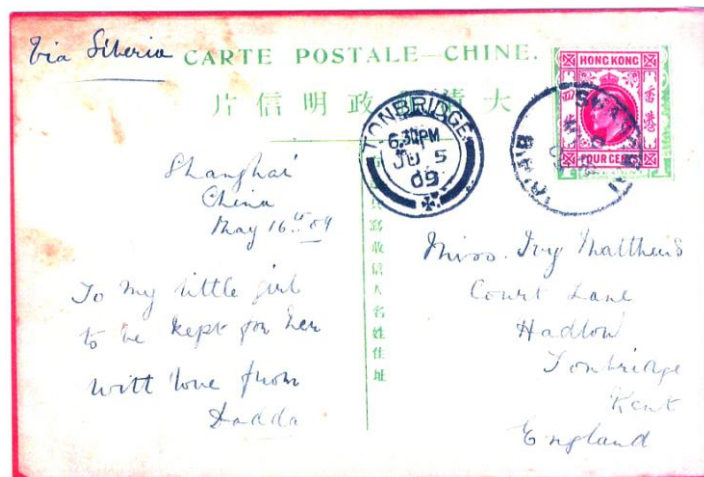 Via Siberia
CARTE POSTALE—CHINE.
片信明政 大
HONG KONG
FOUR CENTS
TONBRIDGE
6.30PM
JU 5
09
Shanghai
China
May 16th 09
To my little girl
to be kept for her
with love from
Dadda
寫收信人名姓住址
Miss. Ivy Matthews
Court Lane
Hadlow
Tonbridge
Kent
England